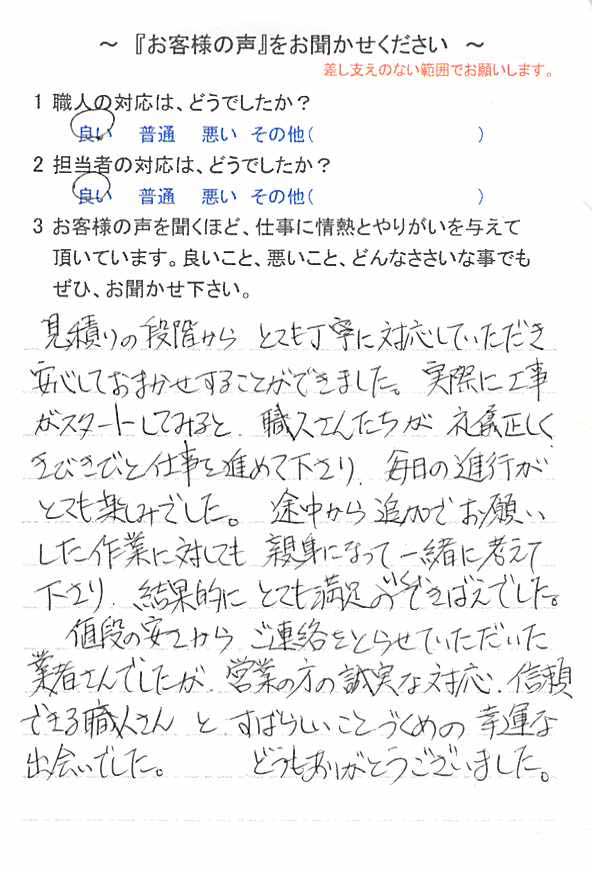 ～ 『お客様の声』をお聞かせください ～
差し支えのない範囲でお願いします。
1 職人の対応は、どうでしたか？
良い 普通 悪い その他( )
2 担当者の対応は、どうでしたか？
良い 普通 悪い その他( )
3 お客様の声を聞くほど、仕事に情熱とやりがいを与えて
頂いています。良いこと、悪いこと、どんなささいな事でも
ぜひ、お聞かせ下さい。
見積りの段階から とても丁寧に対応していただき
安心しておまかせすることができました。実際に工事
がスタートしてみると、職人さんたちが 礼儀正しく
きびきびと仕事を進めて下さり、毎日の進行が
とても楽しみでした。 途中から追加でお願い
した作業に対しても 親身になって一緒に考えて
下さり、結果的に とても満足のいくできばえでした。
値段の安さから ご連絡をとらせていただいた
業者さんでしたが、営業の方の誠実な対応、信頼
できる職人さん と すばらしいことづくめの 幸運な
出会いでした。 どうもありがとうございました。